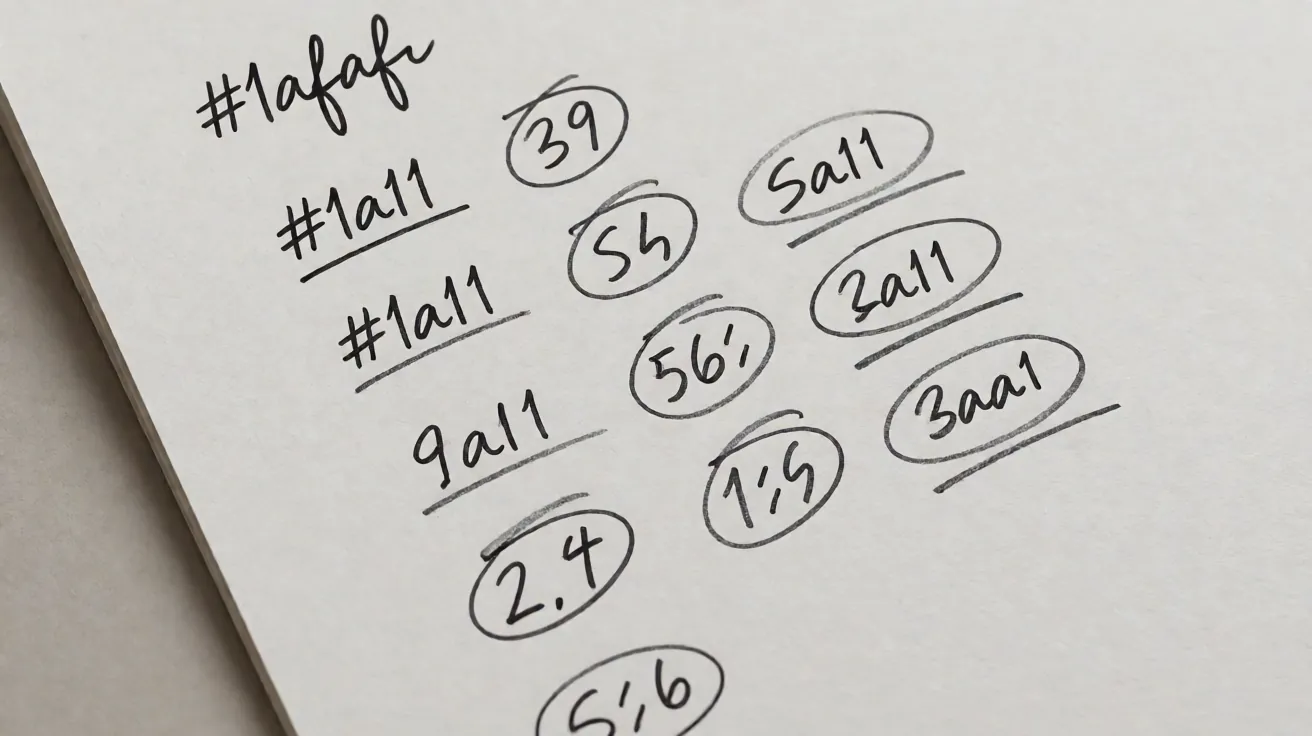 #1afafr
#1a11 39
#1a11 55 5a11
9a11 56% 3a11
2.4 1%5 3aa1
5%6